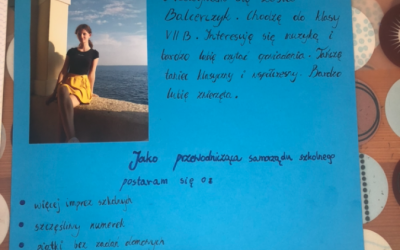 Balcerczyk. Chodzę do klasy
VII B. Interesuję się muzyką i
bardzo lubię czytać
taniec klasyczny i współczesny. Bardzo
lubię zwierzęta.
Jako przewodnicząca samorządu szkolnego
postaram się o:
• więcej imprez szkolnych
• szczęśliwy numerek
• piątki bez